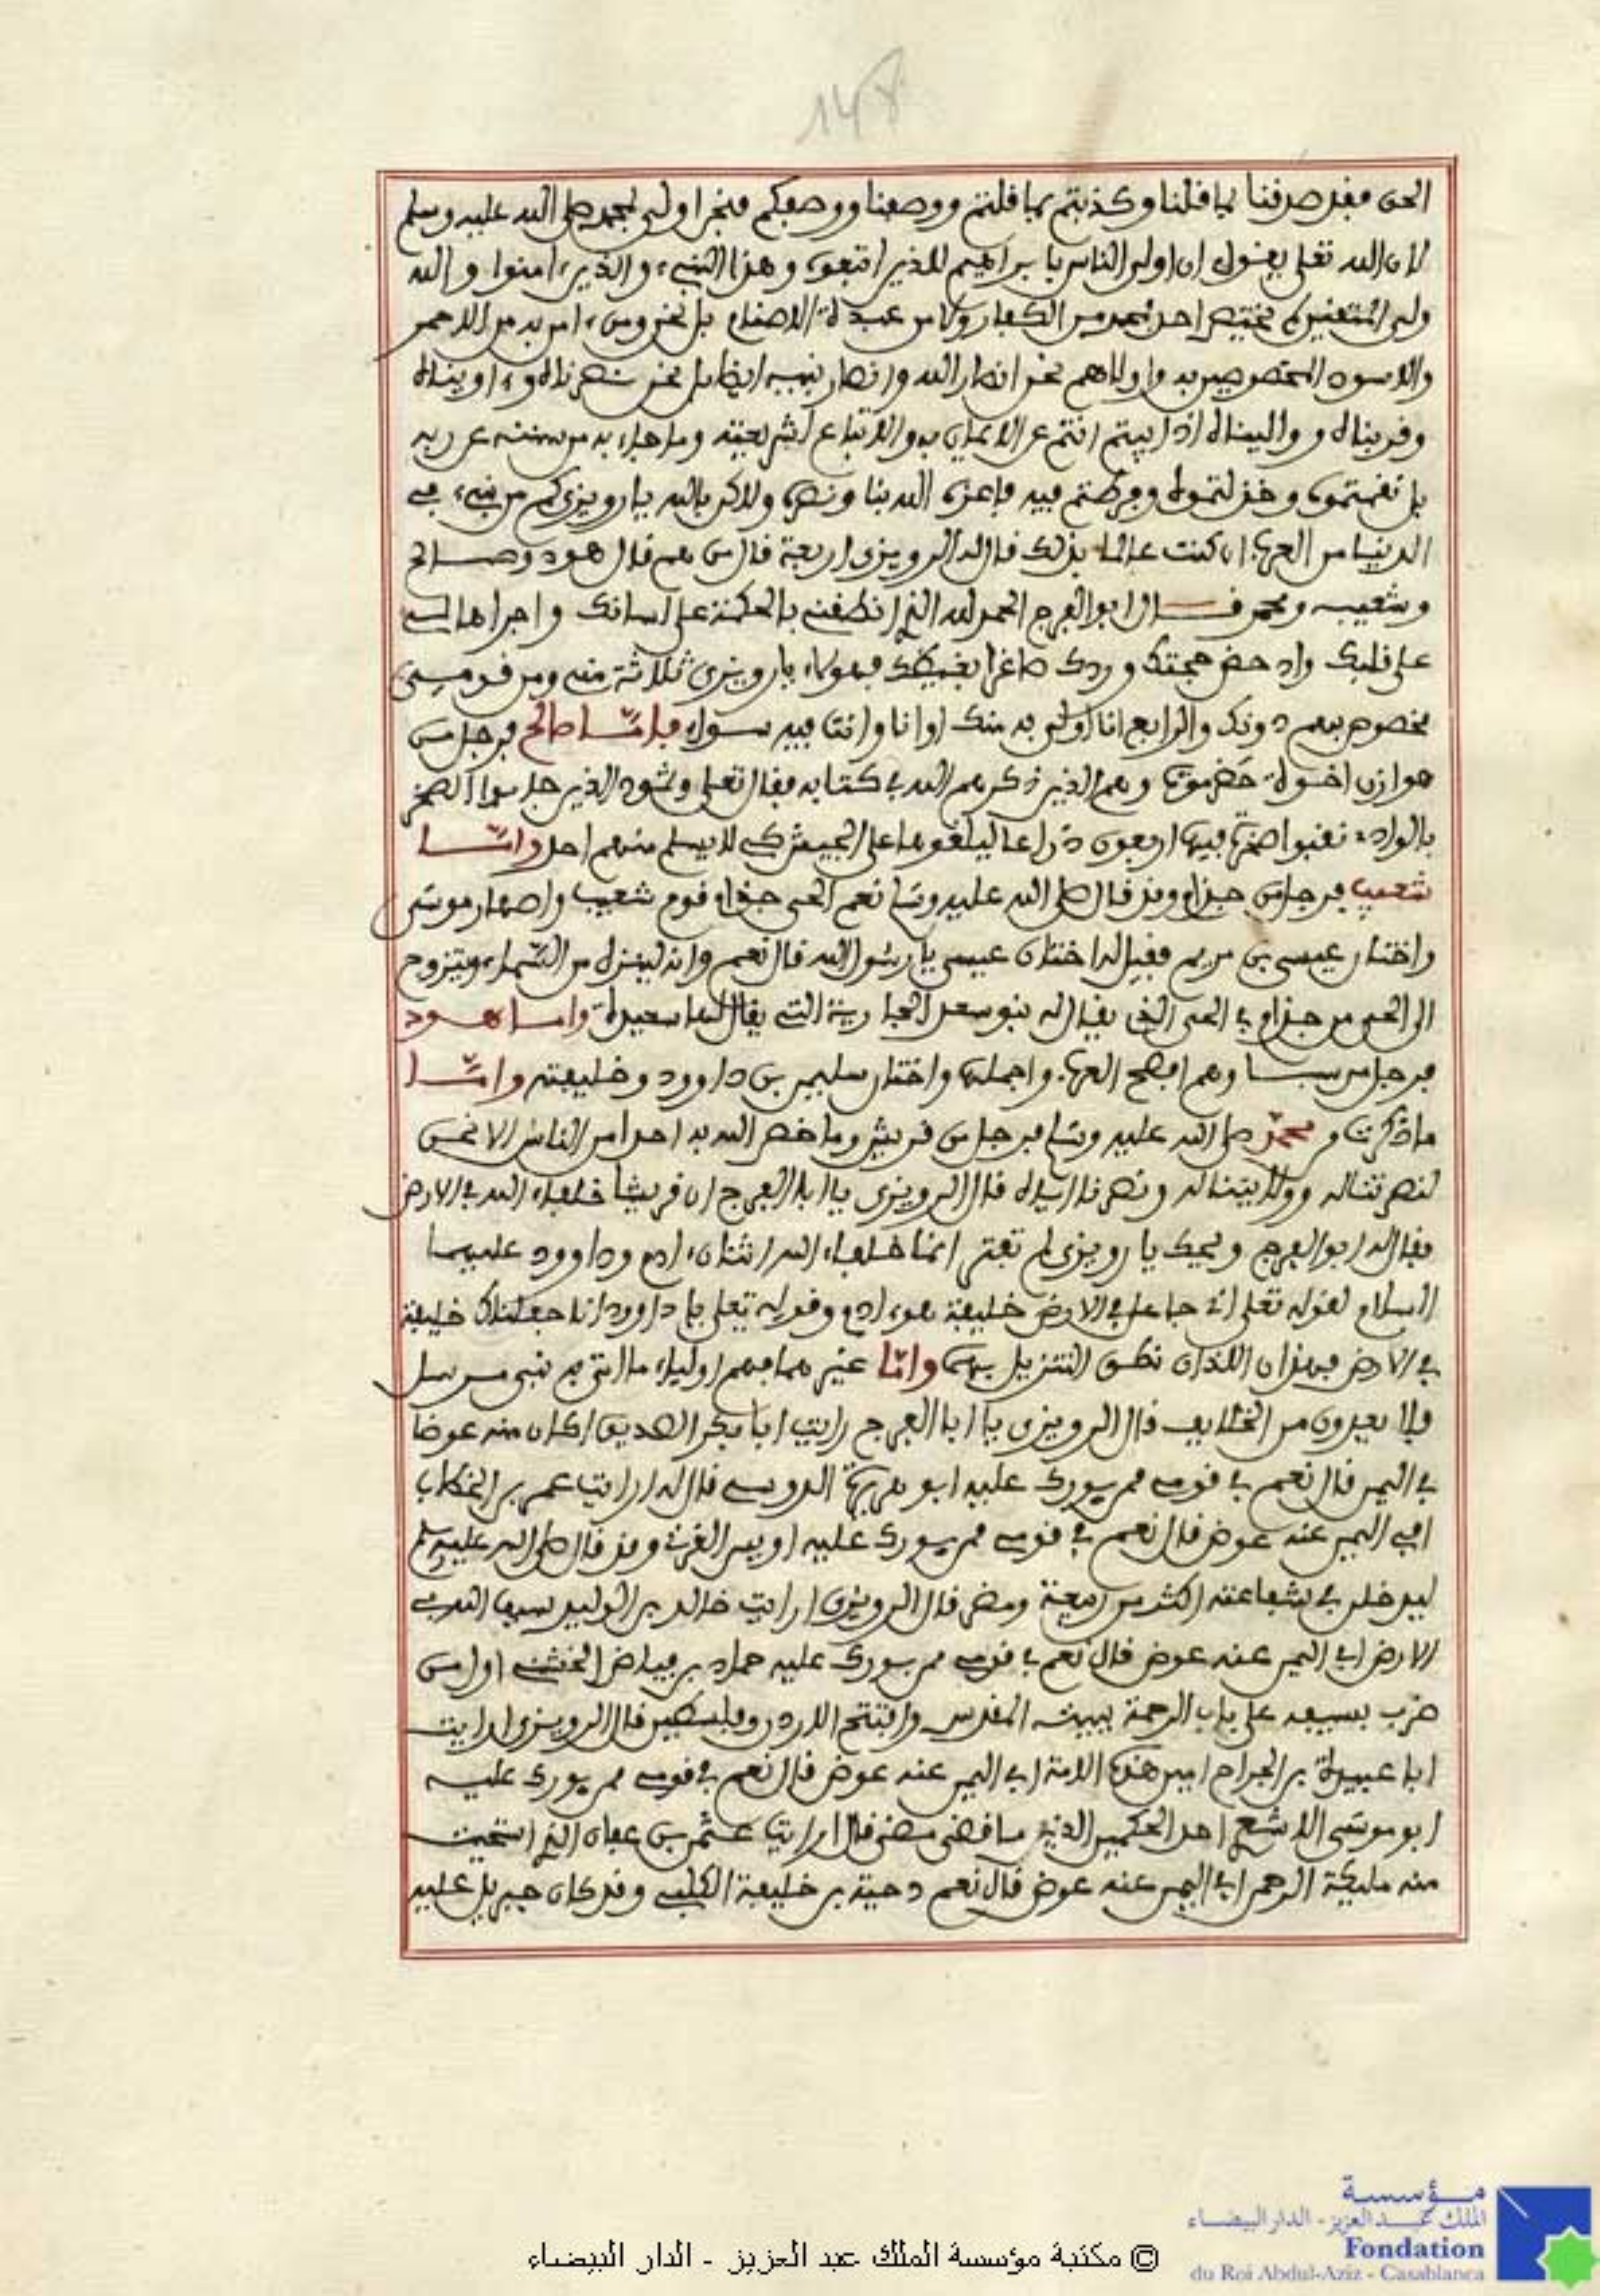 148
الحق فقد صدقنا بما قلنا وكذبتم بما قلتم ووصفنا ووصفكم فنحن اولى بمحمد صلى الله عليه وسلم
لان الله تعلى يقول ان اولى الناس بابراهيم للذين اتبعوه وهذا النبيء والذين امنوا والله
ولي المتقين احد محمد من الكفار ولا من عبدة الاصنام بل نحن ومن امن به من الاحمر
والاسود المخصوصين به واولاهم نحن انصار الله وانصار نبيه ايضا بل نحن نصرناه واويناه
وقربناه وواليناه اذ ابيتم انتم عن الايمان به والاتباع لشريعته وما جاء به من سنته عن ربه
بل نقمتموه وخذلتموه وفرطتم فيه فاعزه الله بنا ونصره ولاكن بالله يا رويزي كم من نبيء في
الدنيا من العرب ان كنت عالما بذلك قال له الرويزي اربعة قال من هم قال هود وصالح
وشعيب ومحمد فقال ابو الفرج الحمد لله الذي انطقني بالحكمة على لسانك واجراها لي
على قلبك وادحض حجتك وردك صاغرا بغيظك فهولاء يا رويزي ثلاثة مني ومن قومي
مخصوص بهم دونك والرابع انا اولى به منك او انا وانت فيه سواء فاما صالح فرجل من
هوازن اخوة حضرموت وهم الذين ذكرهم الله في كتابه فقال تعلى وثمود الذين جابوا الصخر
بالواد نقبوا صخرة فيها اربعون ذراعا ليلقوها على الجيش كي لا يسلم منهم احد واما
شعيب فرجل من جذام وقد قال صلى الله عليه وسلم نعم الحي جذام قوم شعيب واصهار موسى
واختان عيسى بن مريم فقيل له اختان عيسى يا رسول الله قال نعم وانه لينزل من السماء ويتزوج
الى الحي من جذام في الحي الذي يقال له بنو سعد التي يقال لها سعيدة واما هود
فرجل من سبا وهم افصح العرب واجملها واختان سليمن بن داوود وخليفته واما
ما ذكرت من محمد صلى الله عليه وسلم فرجل من قريش وما خص الله به احدا من الناس الا نحن
لنصرتنا له وولايتنا له ونصرنا اياه قال الرويزي يا ابا الفرج ان قريشا خلفاء الله في الارض
فقال له ابو الفرج ويحك يا رويزي لم تفتر انما خلفاء الله اثنان ادم وداوود عليهما
السلام لقوله تعلى اني جاعل في الارض خليفة هو ادم وقوله تعلى يا داوود انا جعلناك خليفة
في الارض فهذان اللذان نطق التنزيل بهما واما غيرهما فهم اولياء ما اتى به نبي مرسل
فلا يعدون من الخلايف قال الرويزي يا ابا الفرج رايت ابا بكر الصديق اكان منه عوضا
في اليمن قال نعم في قومي من يورك عليه ابو هريرة الدوسي قال له ارايت عمر بن الخطاب
افي اليمن عنه عوض قال نعم في قومي من يورك عليه اويس القرني وقد قال صلى الله عليه وسلم
ليدخلن في شفاعته اكثر من ربيعة ومضر قال الرويزي ارايت خالد بن الوليد سيف الله في
الارض افي اليمن عنه عوض قال نعم في قومي من يورك عليه حماد بن فياض الخثني اول من
ضرب بسيفه على باب الرحمة ببيت المقدس وافتتح الاردن وفلسطين قال الرويزي ارايت
ابا عبيدة بن الجراح امين هذه الامة افي اليمن عنه عوض قال نعم في قومي من يورك عليه
ابو موسى الاشعري احد الحكمين الذي ما قضى مضى قال ارايت عثمن بن عفان الذي استحيت
منه مليكة الرحمن افي اليمن عنه عوض قال نعم دحية بن خليفة الكلبي وقد كان جبريل عليه
مؤسسة
الملك عبد العزيز - الدار البيضاء
Fondation
du Roi Abdul-Aziz - Casablanca
© مكتبة مؤسسة الملك عبد العزيز - الدار البيضاء